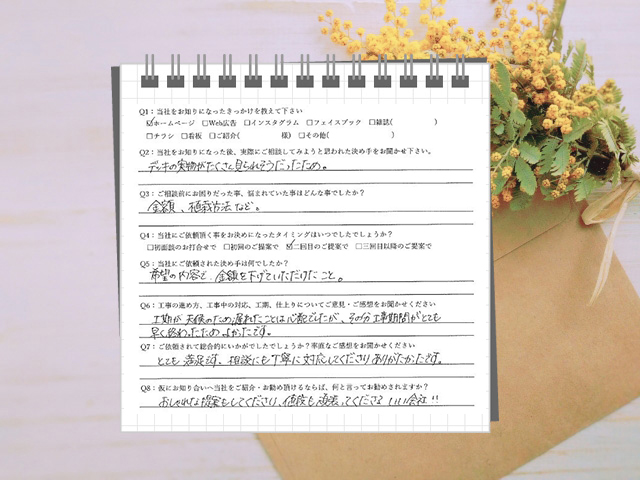 Q1：当社をお知りになったきっかけを教えて下さい
☑ホームページ □Web広告 □インスタグラム □フェイスブック □雑誌( )
□チラシ □看板 □ご紹介( 様) □その他( )
Q2：当社をお知りになった後、実際にご相談してみようと思われた決め手をお聞かせ下さい。
デッキの実物がたくさん見られそうだったため。
Q3：ご相談前にお困りだった事、悩まれていた事はどんな事でしたか？
金額、植栽方法など。
Q4：当社にご依頼頂く事をお決めになったタイミングはいつでしたでしょうか？
□初面談のお打合せで □初回のご提案で ☑二回目のご提案で □三回目以降のご提案で
Q5：当社にご依頼された決め手は何でしたか？
希望の内容で、金額を下げていただけたこと。
Q6：工事の進め方、工事中の対応、工期、仕上りについてご意見・ご感想をお聞かせください
工期が天候のため遅れたことは心配でしたが、その分工事期間がとても
早く終わったため、よかったです。
Q7：ご依頼されて総合的にいかがでしたでしょうか？率直なご感想をお聞かせください
とても満足です。相談にも丁寧に対応してくださりありがたかったです。
Q8：仮にお知り合いへ当社をご紹介・お勧め頂けるならば、何と言ってお勧めされますか？
おしゃれな提案もしてくださり、値段も頑張ってくださるいい会社!!